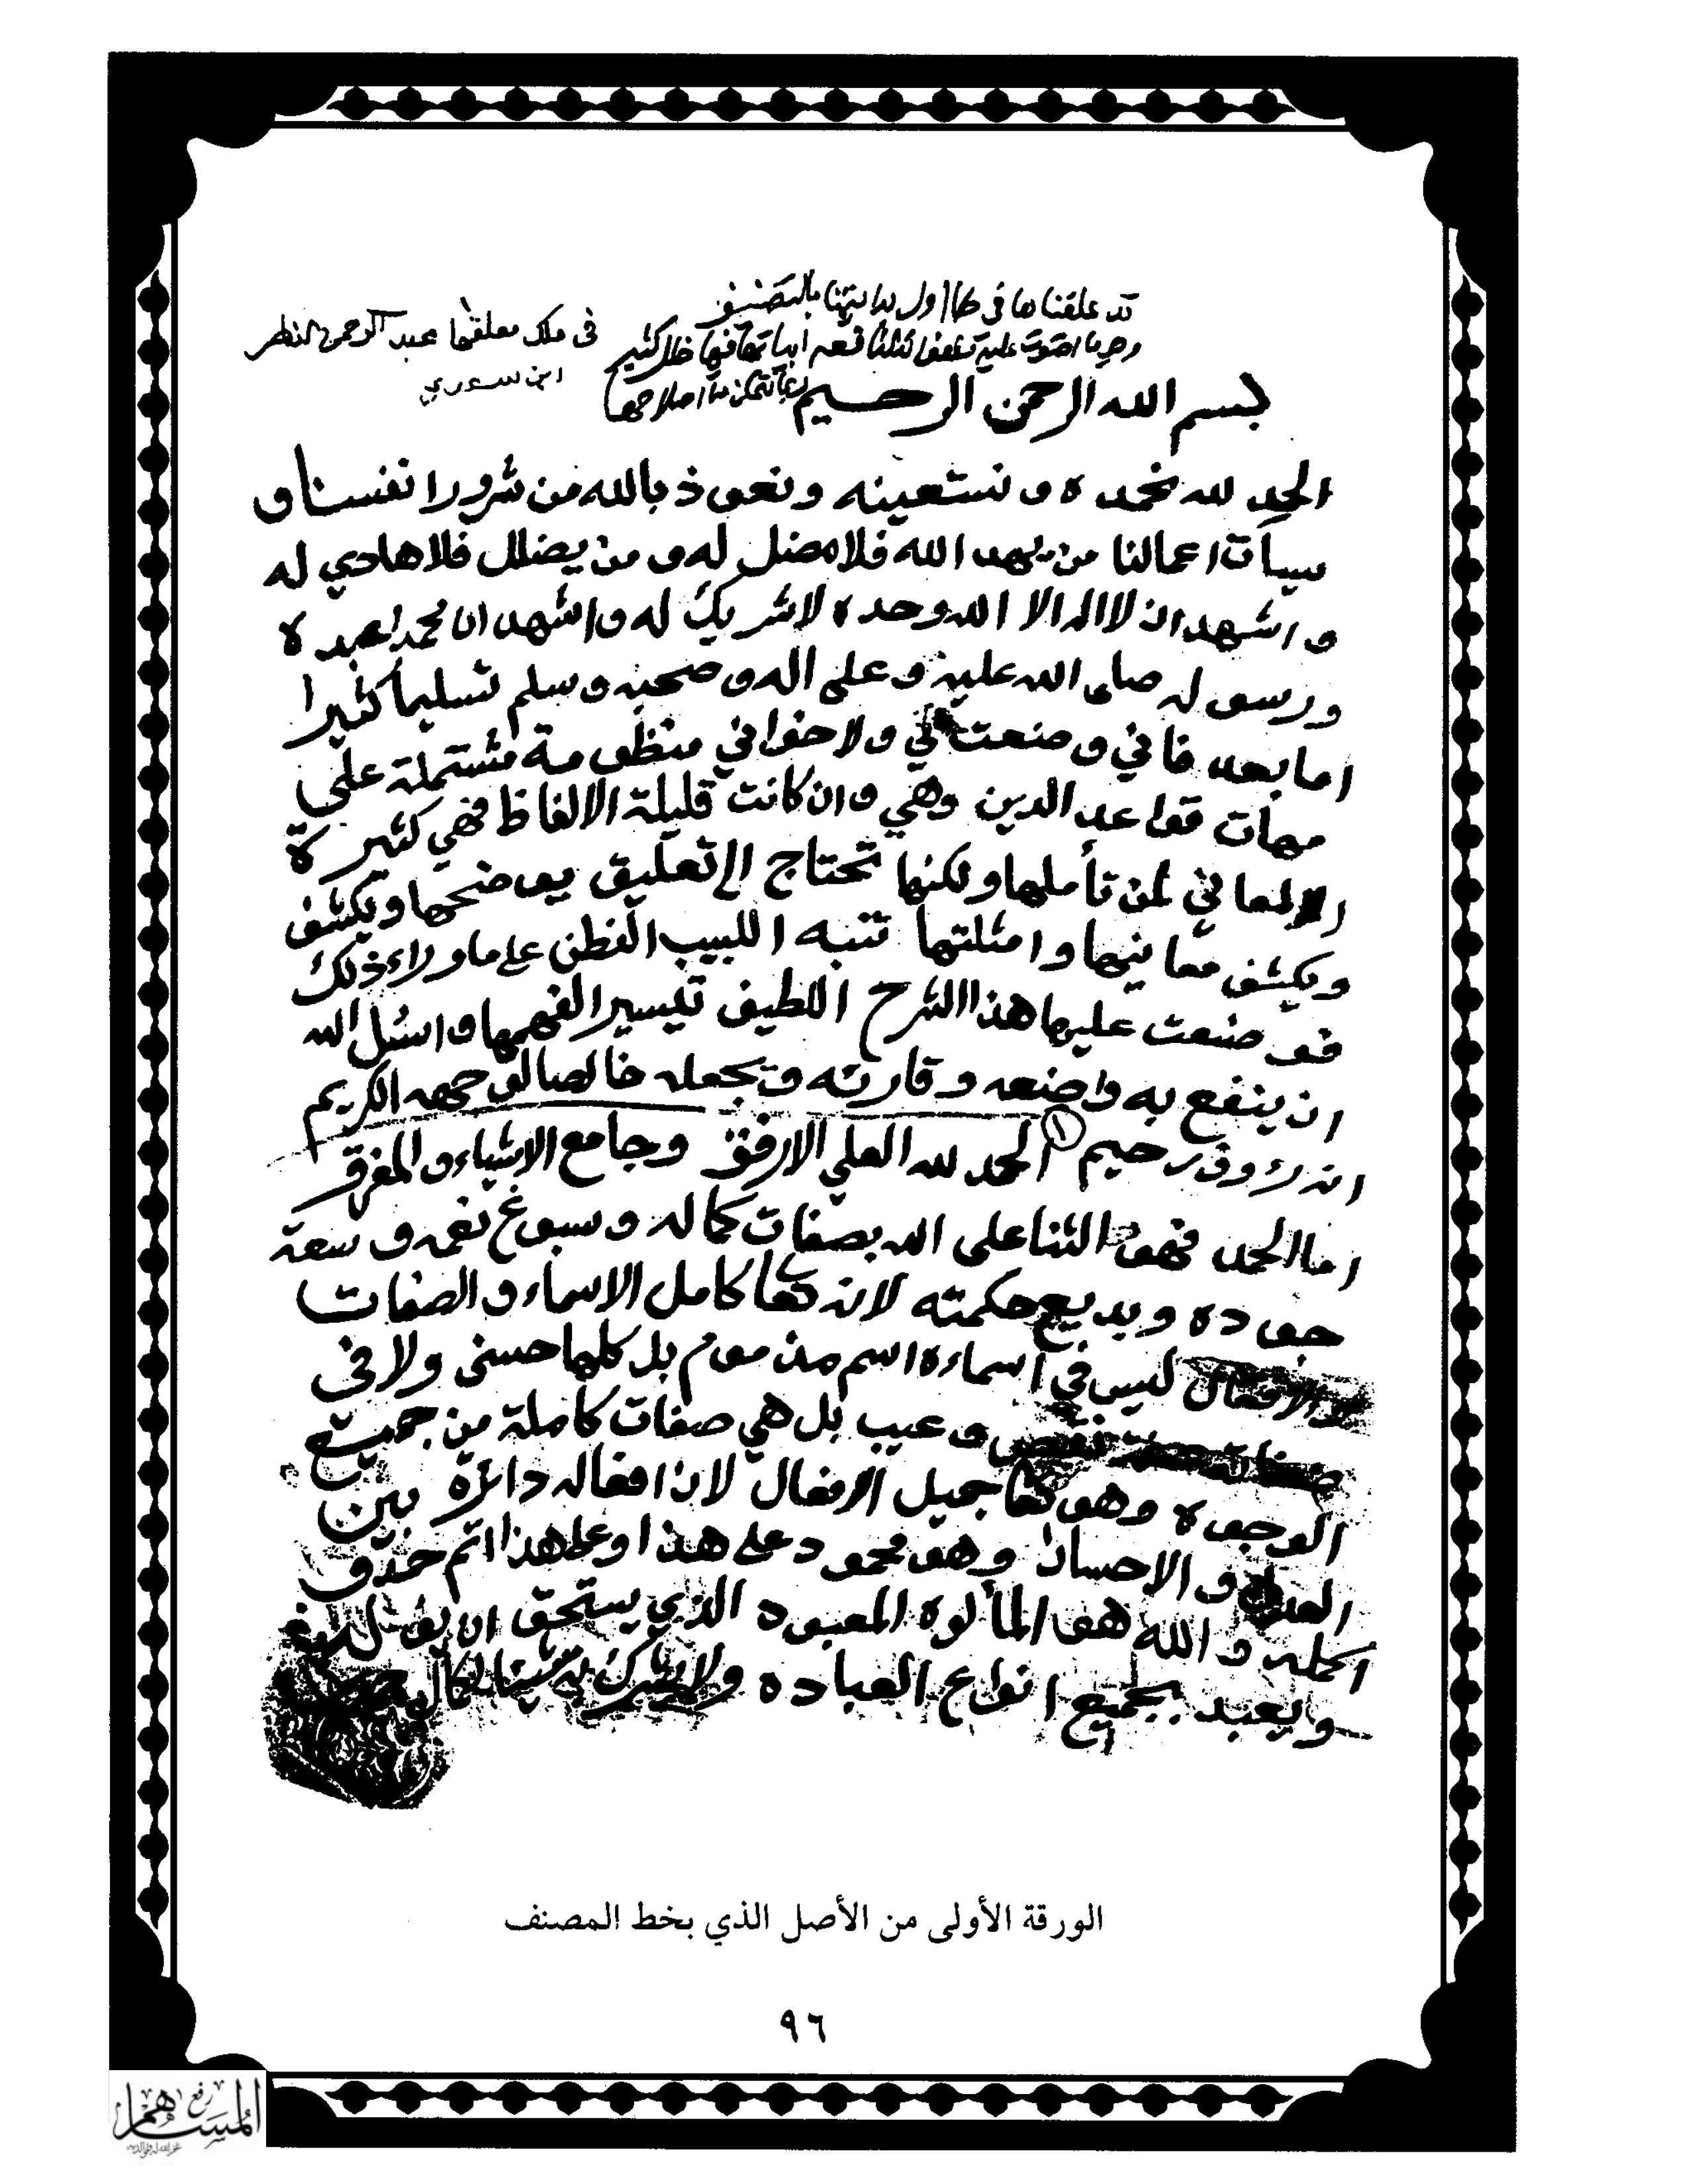 قد علقناها في حال اول بدايتنا بالتصنيف
فيها خلل كثير
ما اصلاحها
في ملك معلقها عبد الرحمن الناصر
ابن سعدي
بسم الله الرحمن الرحيم
الحمد لله نحمده ونستعينه ونعوذ بالله من شرور انفسنا و
سيات اعمالنا من يهد الله فلا مضل له ومن يضلل فلا هادي له
واشهد ان لا اله الا الله وحده لا شريك له واشهد ان محمدا عبده
ورسوله صلى الله عليه وعلى اله وصحبه وسلم تسليما كثيرا
اما بعد فاني وضعت لي ولاخواني منظومة مشتملة على
مهمات قواعد الدين وهي وان كانت قليلة الالفاظ فهي كثيرة
المعاني لمن تأملها ولكنها تحتاج الى تعليق يوضحها ويكشف
ويكشف معانيها وامثلتها تنبه اللبيب الفطن على ما وراء ذلك
فوضعت عليها هذا الشرح اللطيف تيسيرا لفهمها واسئل الله
ان ينفع به واضعه وقارئه ويجعله خالصا لوجهه الكريم
انه رءوف رحيم ١ الحمد لله العلي الارفق وجامع الاشياء والمفرق
اما الحمد فهو الثنا على الله بصفات كماله وسبوغ نعمه وسعة
جوده وبديع حكمته لانه تعا كامل الاسماء والصفات
والافعال ليس في اسماءه اسم مذموم بل كلها حسنى ولا في
صفاته صفة نقص وعيب بل هي صفات كاملة من جميع
الوجوه وهو تعا جميل الافعال لان افعاله دائرة بين
العدل والاحسان وهو محمود على هذا وعلى هذا اتم حمد و
اكمله والله هو المألوه المعبود الذي يستحق ان
ويعبد بجميع انواع العباده ولا يشرك به شيئا لكمال
الورقة الأولى من الأصل الذي بخط المصنف
٩٦
رفع
المساهم